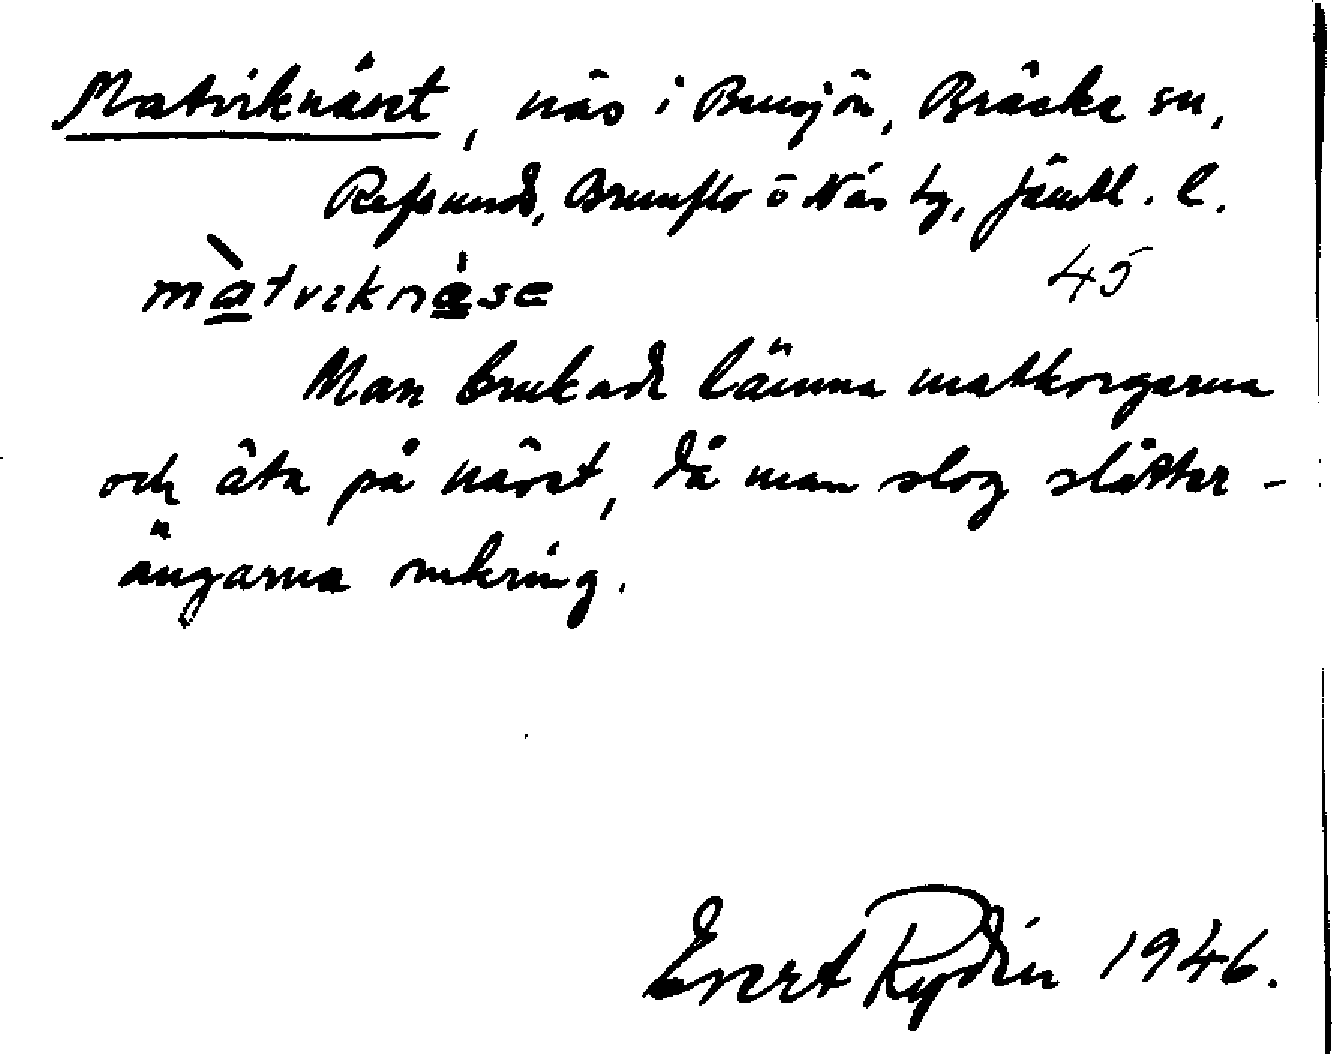 Matviknäset, näs i Bensjön, Bräcke sn,
Refsunds, Brunflo o Näs tg, Jämtl. l.
màtviknä́se 45
Man brukade lämna matkorgarna
och äta på näset, då man slog slåtter-
ängarna omkring.
Evert Rydin 1946.